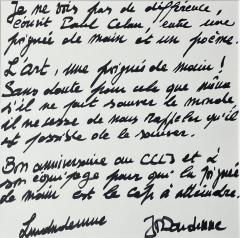 Je ne vois pas de différence,
écrit Paul Celan, entre une
poignée de main et un poème.
L'art, une poignée de main !
Sans doute pour cela que même
s'il ne peut sauver le monde
il ne cesse de nous rappeler qu'il
est possible de le sauver.
Bon anniversaire au et à
son équipage pour qui la poignée
de main est le cap à atteindre.
Luc Dardenne JP Dardenne